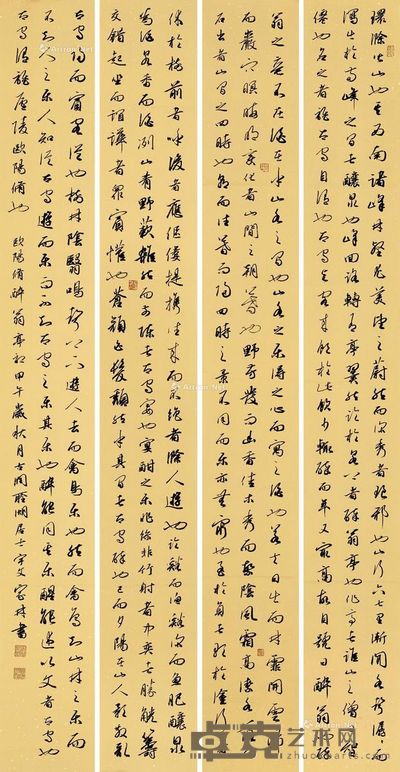 環滁皆山也其西南諸峰林壑尤美望之蔚然而深秀者琅邪也山行六七里漸聞水聲潺潺而
瀉出於兩峰之間者釀泉也峰回路轉有亭翼然臨於泉上者醉翁亭也作亭者誰山之僧智
僊也名之者誰太守自謂也太守與客來飲於此飲少輒醉而年又最高故自號曰醉翁也醉
翁之意不在酒在乎山水之間也山水之樂得之心而寓之酒也若夫日出而林霏開雲歸
而巖穴暝晦明變化者山間之朝暮也野芳發而幽香佳木秀而繁陰風霜高潔水落
石出者山間之四時也朝而往暮而歸四時之景不同而樂亦無窮也至於負者歌於塗行者
休於樹前者呼後者應傴僂提攜往來而不絕者滁人遊也臨谿而漁谿深而魚肥釀泉
為酒泉香而酒洌山肴野蔌雜然而前陳者太守宴也宴酣之樂非絲非竹射者中奕者勝觥籌
交錯起坐而諠譁者眾賓懽也蒼顏白髮頹然乎其間者太守醉也已而夕陽在山人影散亂
太守歸而賓客從也樹林陰翳鳴聲上下遊人去而禽鳥樂也然而禽鳥知山林之樂而
不知人之樂人知從太守遊而樂而不知太守之樂其樂也醉能同其樂醒能述以文者太守也
太守謂誰廬陵歐陽脩也 歐陽脩醉翁亭記 甲午歲秋月 湖居士宇文家林書
卓克艺术网